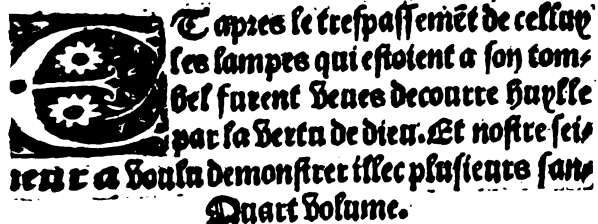 ET apres le trespassemēt de celluy
les lampes qui estoient a son tom⸗
bel furent veues decourre huylle
par la vertu de dieu. Et nostre sei⸗
neur a voulu demonstrer illec plusieurs san⸗
Quart volume.